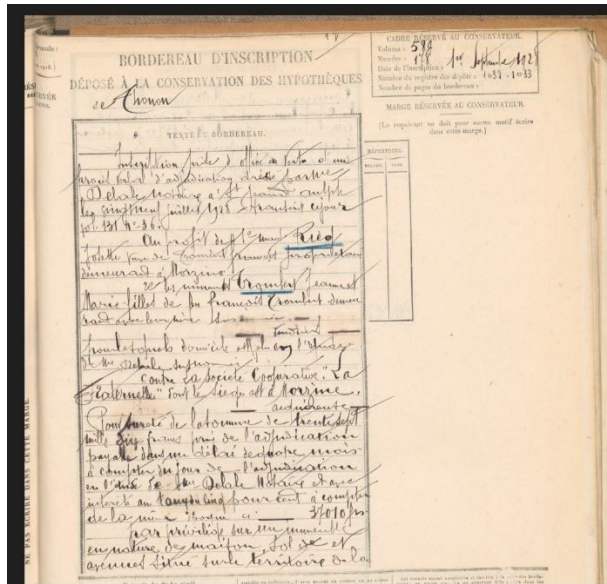 BORDEREAU D'INSCRIPTION
DÉPOSÉ À LA CONSERVATION DES HYPOTHÈQUES
de Thonon
CADRE RÉSERVÉ AU CONSERVATEUR.
Volume : 592
Numéro : 178
Date de l'inscription : 1er Septembre 1928
Numéro du registre des dépôts : 1033
Nombre de pages du bordereau :
MARGE RÉSERVÉE AU CONSERVATEUR.
(Le requérant ne doit pour aucun motif écrire
dans cette marge.)
RÉPERTOIRE.
TEXTE DU BORDEREAU.
Inscription prise d'office en vertu d'un
procès verbal d'adjudication dressé par Me
Delale notaire à St
les vingt neuf juillet 1928 transcrit ce jour
vol. 131 N° 36.
Au profit de 1° mad
Josette veuve de Trombert françois propriétaire
demeurant à Morzine
2° les mineures Trombert Jeanne et
Marie filles de feu françois Trombert demeu
rant avec leur mère
vendeurs
pour lesquels domicile est élu en l'étude
de Me Delale susnommé
Contre La Société Coopérative "La
Fraternelle" dont le siège est à Morzine,
acquéreute
Pour sureté de la somme de trente sept
mille dix francs prix de l'adjudication
payable dans un délai de quatre mois
à compter du jour de l'adjudication
en l'étude de Me Delale Notaire et avec
intérêts au taux du cinq pour cent à compter
de la même époque ci 37010 frs
par privilège sur un immeuble
en nature de maison, sol et
avenues situé sur le territoire de la
NE PAS ÉCRIRE DANS CETTE MARGE